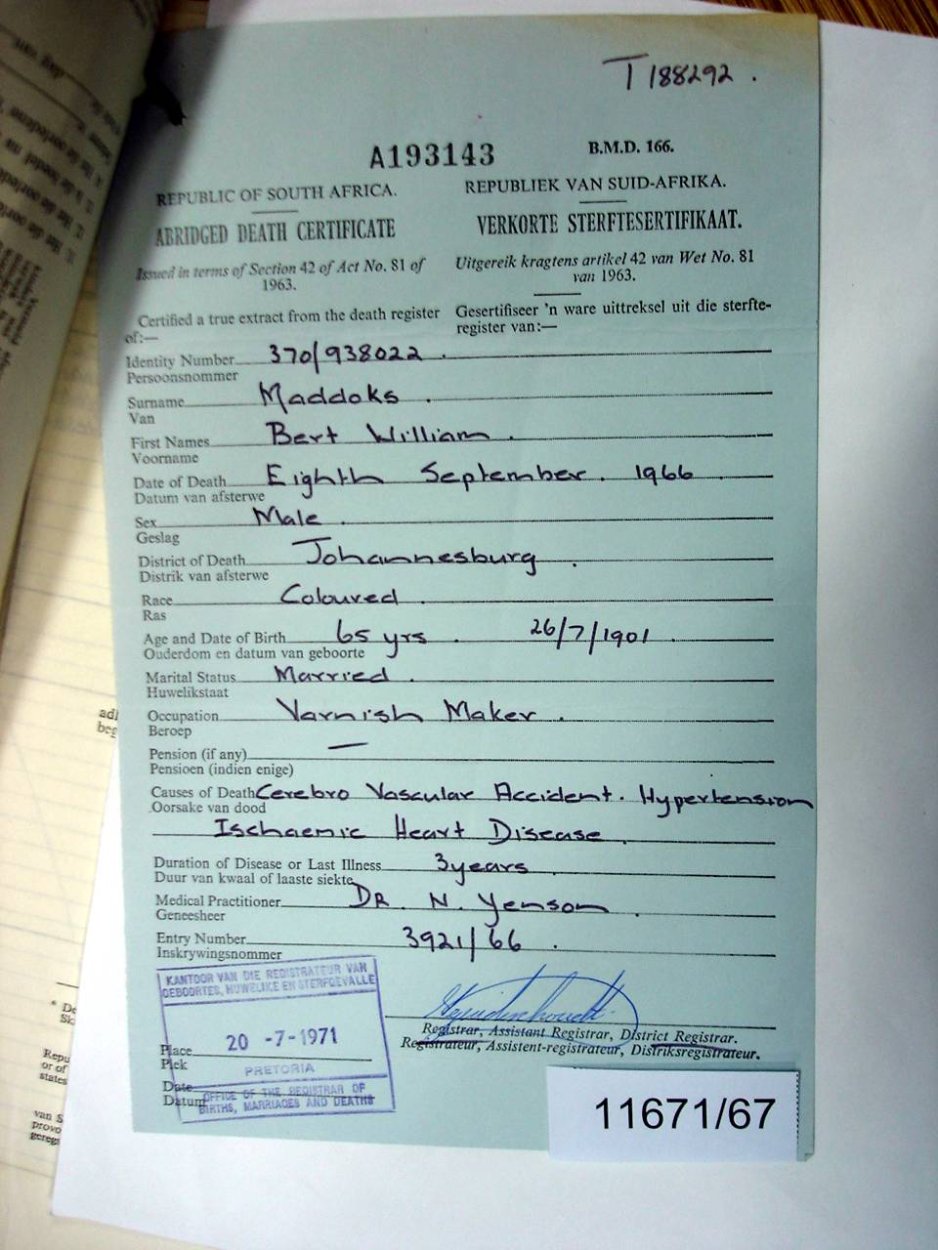 T 188292 .
A193143
B.M.D. 166.
REPUBLIC OF SOUTH AFRICA.
ABRIDGED DEATH CERTIFICATE
Issued in terms of Section 42 of Act No. 81 of
1963.
Certified a true extract from the death register
of:—
REPUBLIEK VAN SUID-AFRIKA.
VERKORTE STERFTESERTIFIKAAT.
Uitgereik kragtens artikel 42 van Wet No. 81
van 1963.
Gesertifiseer 'n ware uittreksel uit die sterfte-
register van:—
Identity Number 370/938022 .
Persoonsnommer
Surname Maddoks .
Van
First Names Bert William .
Voorname
Date of Death Eighth September . 1966
Datum van afsterwe
Sex Male .
Geslag
District of Death Johannesburg .
Distrik van afsterwe
Race Coloured .
Ras
Age and Date of Birth 65 yrs . 26/7/1901 .
Ouderdom en datum van geboorte
Marital Status Married .
Huwelikstaat
Occupation Varnish Maker .
Beroep
Pension (if any) —
Pensioen (indien enige)
Causes of Death Cerebro Vascular Accident . Hypertension
Oorsake van dood
Ischaemic Heart Disease .
Duration of Disease or Last Illness 3 years .
Duur van kwaal of laaste siekte
Medical Practitioner DR . N. Yensom .
Geneesheer
Entry Number 3921/66 .
Inskrywingsnommer
KANTOOR VAN DIE REGISTRATEUR VAN
GEBOORTES, HUWELIKE EN STERFGEVALLE
20 -7-1971
Place
Plek
PRETORIA
Date
Datum
OFFICE OF THE REGISTRAR OF
BIRTHS, MARRIAGES AND DEATHS
Registrar, Assistant Registrar, District Registrar.
Registrateur, Assistent-registrateur, Distriksregistrateur.
11671/67